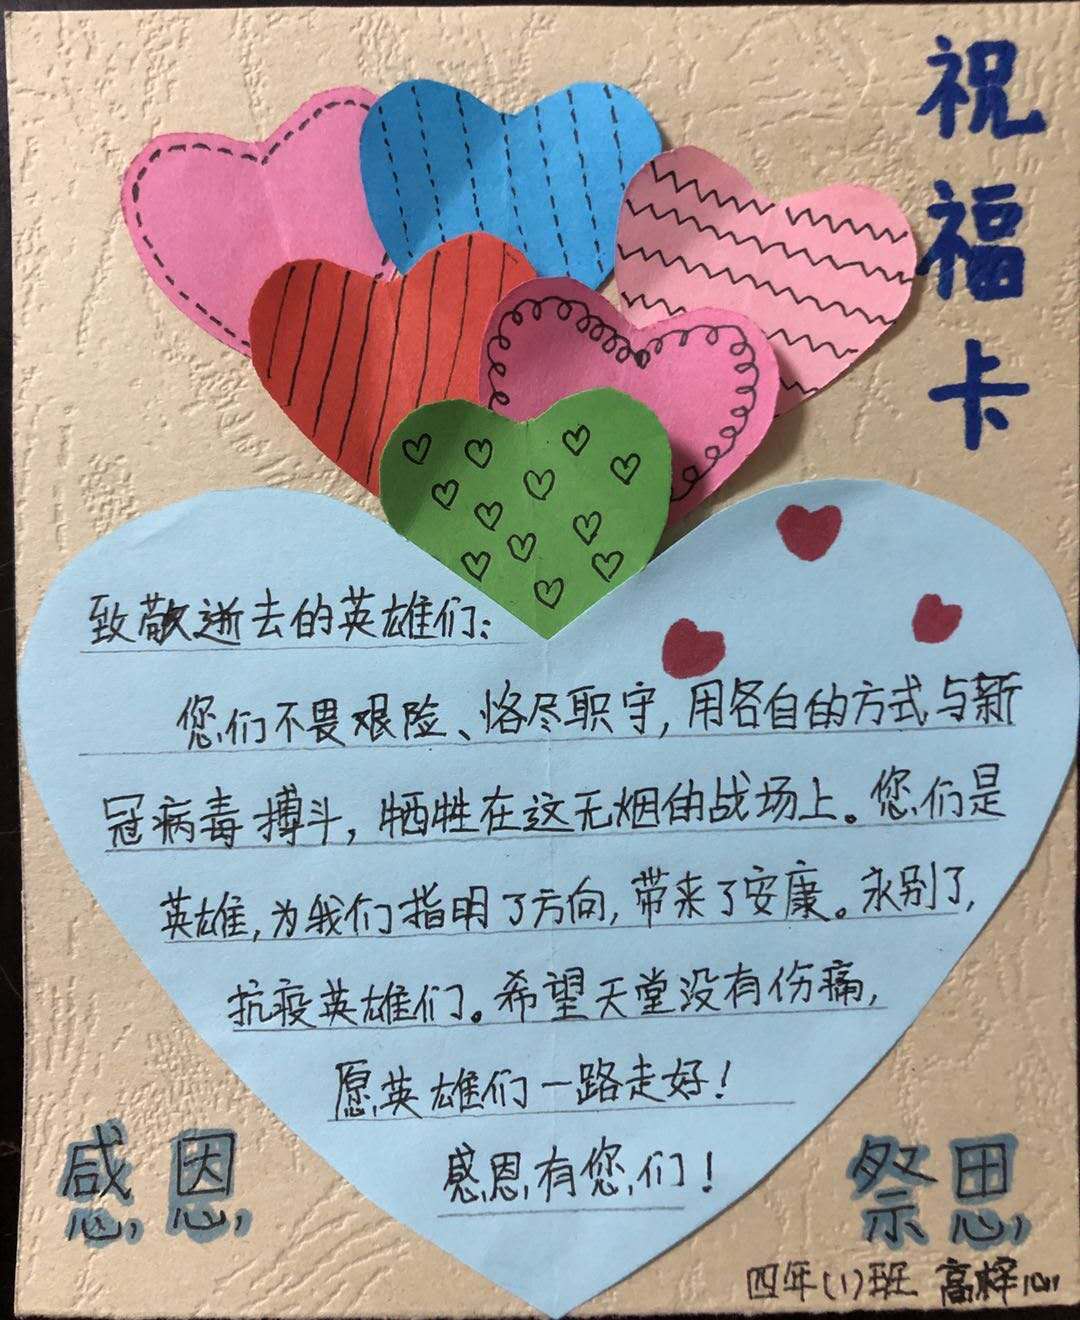 祝福卡
致敬逝去的英雄们:
您们不畏艰险、恪尽职守,用各自的方式与新
冠病毒搏斗,牺牲在这无烟的战场上。您们是
英雄,为我们指明了方向,带来了安康。永别了,
抗疫英雄们。希望天堂没有伤痛,
愿英雄们一路走好!
感恩有您们!
感恩
祭思
四年(1)班 高梓